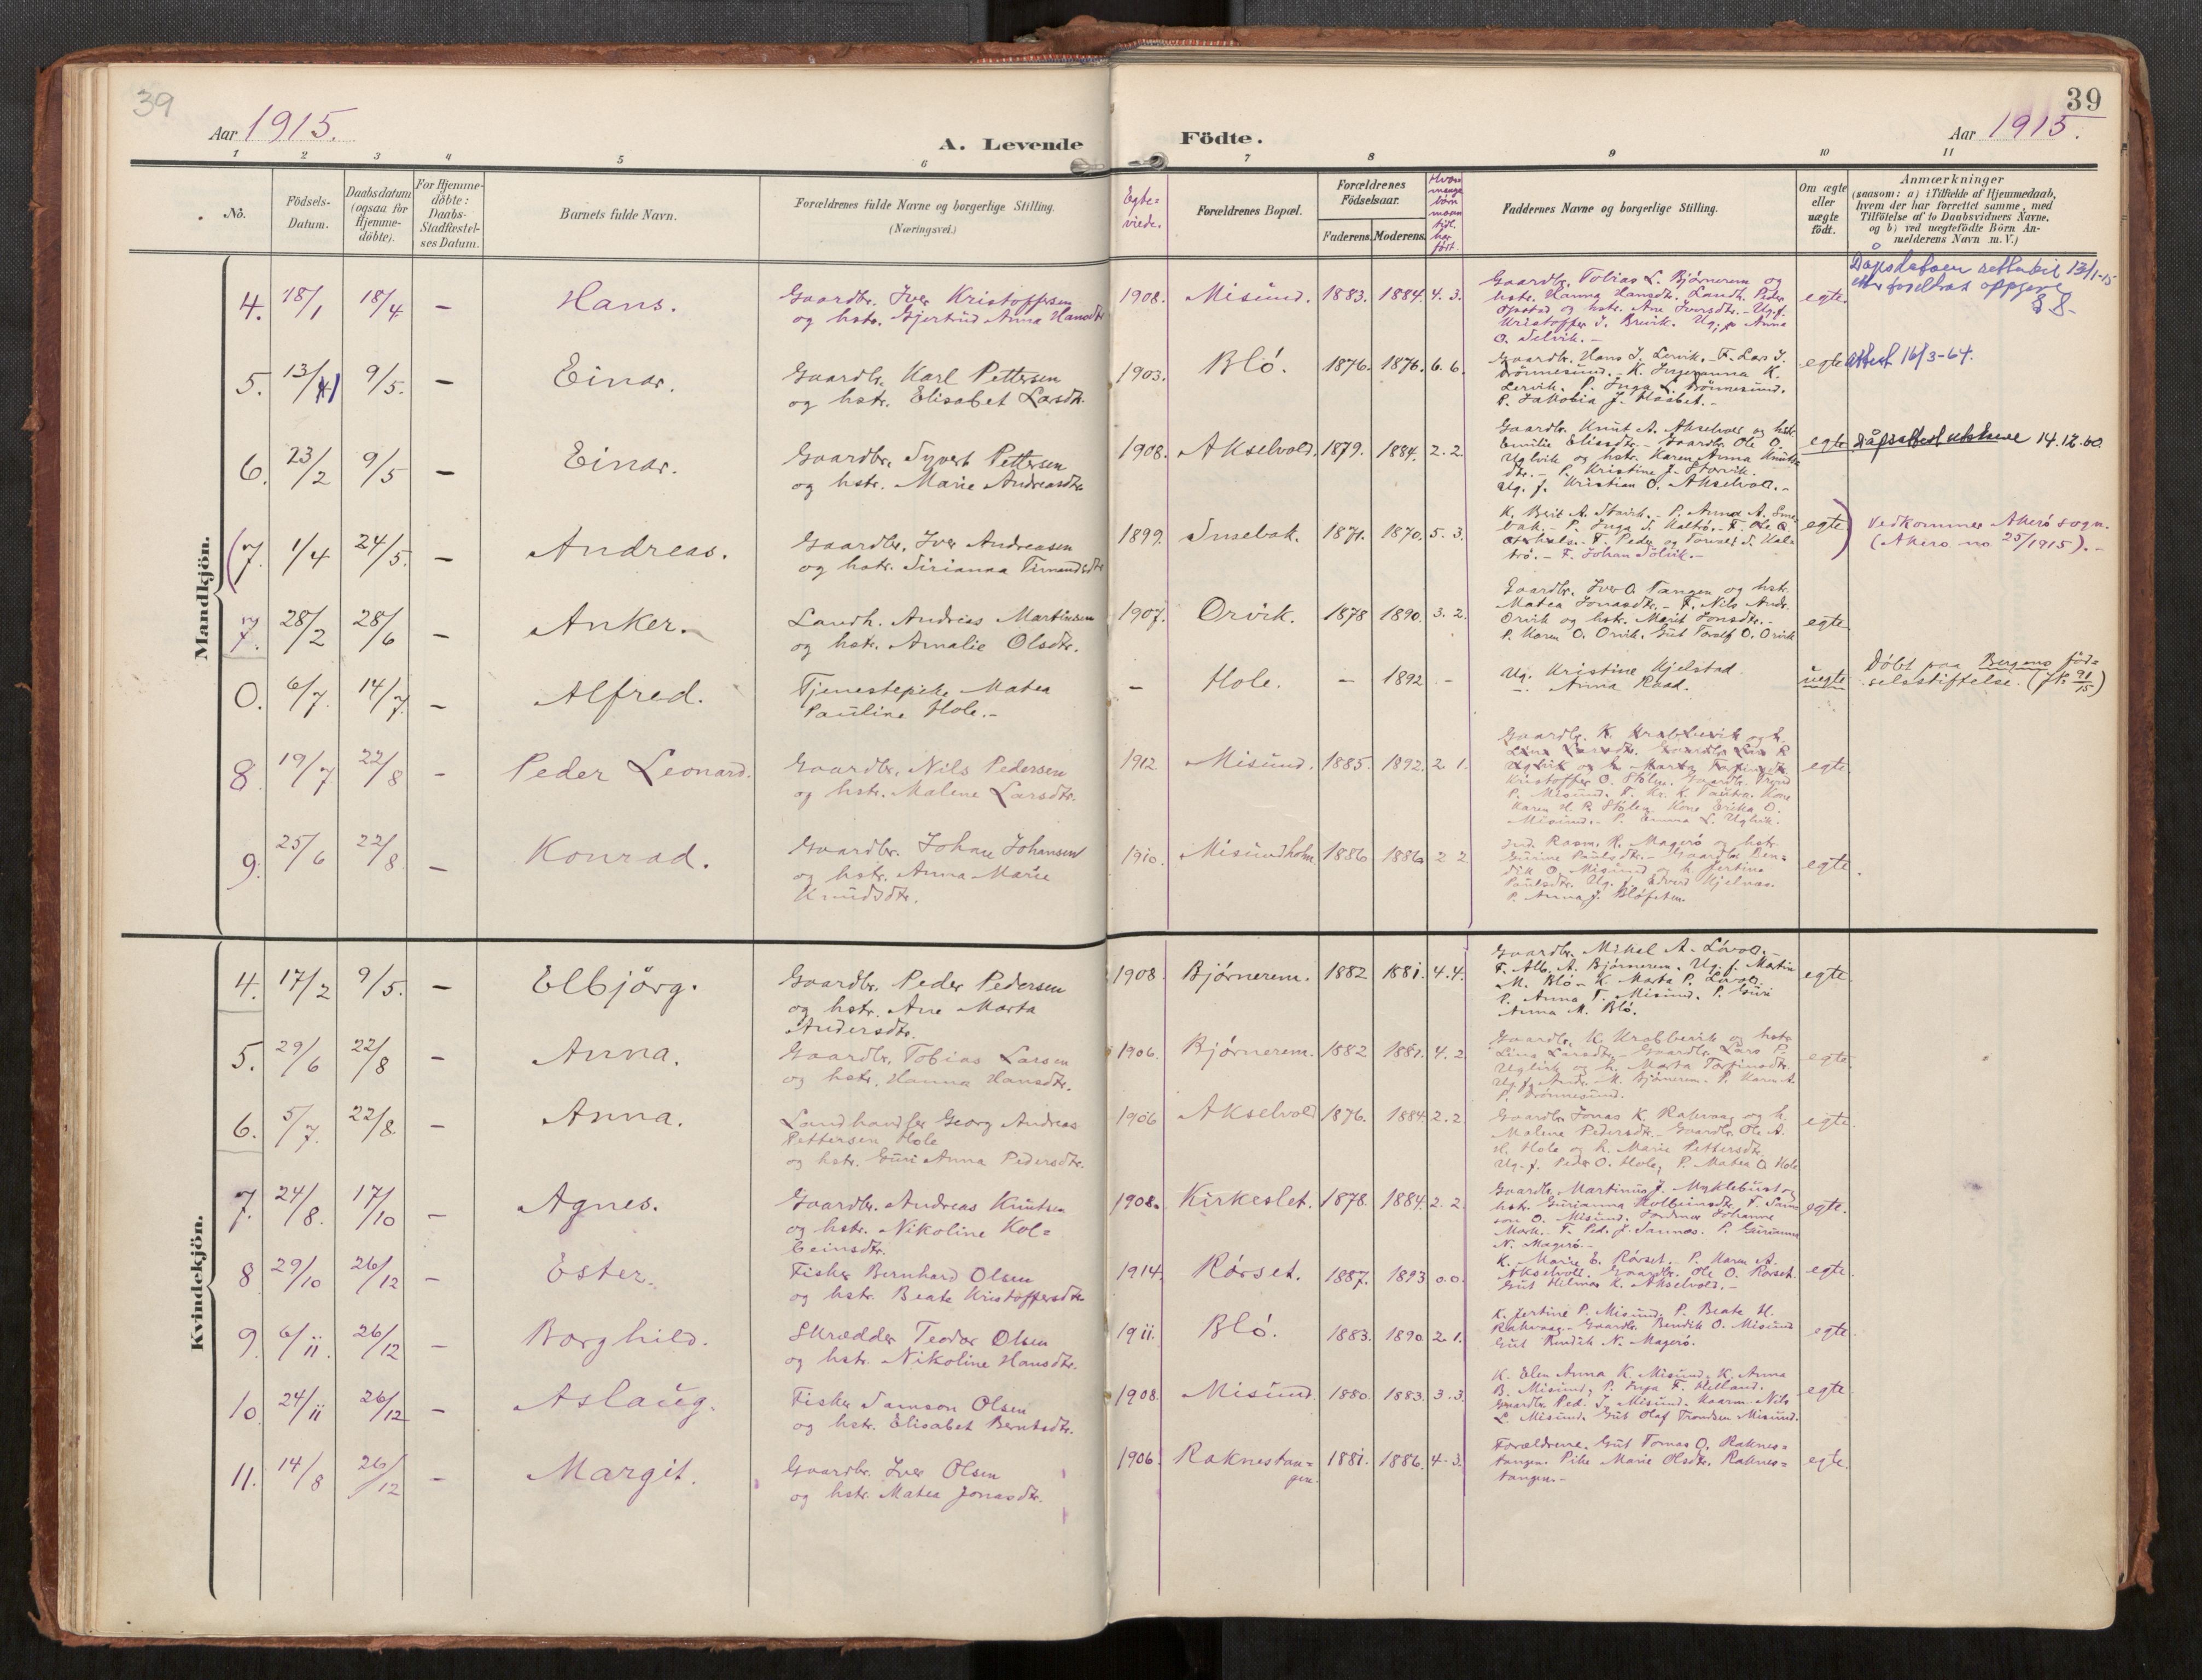 39
39
Aar 1915.
Aar 1915.
A. Levende Födte.
1 2 3 4 5 6 7 8 9 10 11
No.
Födsels-
Datum.
Daabsdatum
(ogsaa for
Hjemme-
döbte).
For Hjemme-
döbte:
Daabs-
Stadfæstel-
ses Datum.
Barnets fulde Navn.
Forældrenes fulde Navne og borgerlige Stilling.
(Næringsvei.)
Egte-
viede.
Forældrenes Bopæl.
Forældrenes
Födselsaar.
Faderens. Moderens.
Hvor
mange
börn
moren
tidl.
har
födt.
Faddernes Navne og borgerlige Stilling.
Om ægte
eller
uægte
födt.
Anmærkninger
(saasom: a) i Tilfælde af Hjemmedaab,
hvem der har forrettet samme, med
Tilföielse af to Daabsvidners Navne,
og b) ved uægtefödte Börn An-
melderens Navn m. V.)
Mandkjön.
4. 18/1 18/4 – Hans.
Gaardbr. Iver Kristoffersen
og hstr. Gjertrud Anna Hansdtr
1908. Misund. 1883. 1884. 4. 3.
Gaardbr. Tobias L. Bjørnerem og
hstr. Hanna Hansdtr. Landh. Peder
Opstad og hstr. Ane Iversdtr. - Ug. f.
Kristoffer J. Brevik. Ug. p. Anna
O. Selvik. -
egte.
13/1-15
5. 13/1 9/5. – Einar.
Gaardbr. Karl Pettersen
og hstr. Elisabet Larsdtr.
1903. Bló. 1876. 1876. 6. 6.
Gaardbr. Hans J. Lervik. - F. Lars J.
Drönnesund. - K. Ingeranna K.
Lervik. P. Inga L. Drönnesund.
P. Jakobia J.
egte
Attest 16/3-64.
6. 23/2 9/5 – Einar.
Gaardbr. Syvert Pettersen
og hstr. Marie Andreasdtr
1908. Akselvold. 1879. 1884. 2. 2.
Gaardbr. Knut A. Akselvold og hstr
Emilie Eliasdtr. - Gaardbr. Ole O.
Uglvik og hstr. Karen Anna Knuts
dtr. - P. Kristine J. Storvik.
Ug. f. Kristian O. Akselvoll. -
egte
Dåpsattest utskreve 14.12.60
(7. 1/4 24/5. – Andreas.
Gaardbr. Iver Andreasen
og hstr. Sirianna
1899. Insebak. 1871. 1870. 5. 3.
K. Berit A. Storvik. - P. Anna A. Inse-
bak. - P. Inga S. Kaltrö. - F. Ole A.
F. Peder og Tomas S. Kal-
trö. - F. Johan Solvik. -
egte)
Vedkommer Akerö sogn.
(Akerö no 25/1915). -
7. 28/2 28/6 – Anker.
Landh. Andreas Martinsen
og hstr. Amalie Olsdtr.
1907. Orvik. 1878 1890. 3. 2.
Gaardbr. Iver O. Tangen og hstr.
Matea Jonasdtr. - F. Nils Andr.
Orvik og hstr. Marit Jonsdtr. -
P. Karen O. Orvik. Gut Toralf O. Orvik
egte
0. 6/7. 14/7. – Alfred.
Tjenestepike Matea
Pauline Hole. -
– Hole. – 1892 –
Ug. Kristine Kjelstad.
–. Anna Raad.
uegte
Döbt paa Bergens föd-
selsstiftelse. (jr. 91/15)
8. 19/7 22/8 – Peder Leonard.
Gaardbr. Nils Pedersen
og hstr. Malene Larsdtr.
1912 Misund. 1885. 1892. 2 1.
Gaardbr. K. Krabbevik og h.
Lina Larsdtr. Gaardbr. Lars P.
Uglvik og h. Marta Torfinsdtr.
Kristoffer O. Stölen. Gaardbr. Trond
P. Misund. F. Kr. K. Tautra. Kone
Karen H. P. Stölen. Kone Erika O.
Misund. - P. Emma L. Uglvik.
egte.
9. 25/6 22/8. – Konrad.
Gaardbr. Johan Johansen
og hstr. Anna Marie
Knudsdtr.
1910. Misundholm 1886 1886 2 2
Ind. Rasm. R. Magerö og hstr.
Gurine Paulsdtr. - Gaardbr. Ben-
dik O. Misund og h. Jertine
Paulsdtr. Ug. f. Edvard Kjelnæs.
P. Anna J.
egte.
Kvindekjön.
4. 17/2 9/5. – Elbjörg.
Gaardbr. Peder Pedersen
og hstr. Ane Marta
Andersdtr.
1908. Bjórnerem. 1882 1881. 4. 4.
Gaardbr. Mikal A. Lövoll. -
F. Alb. A. Bjørnerem. Ug. f. Martin
M. Bló - K. Marta P. Lövoll.
P. Anna T. Misund. P. Guri
Anna M. Bló.
egte.
5. 29/6 22/8 – Anna.
Gaardbr. Tobias Larsen
og hstr. Hanna Hansdtr.
1906. Bjórnerem. 1882 1881. 4. 2
Gaardbr. K. Krabbevik og hstr
Lina Larsdtr. - Gaardbr. Lars P.
Uglvik og h. Marta Torfinsdtr.
Ug. f. Andr. M. Bjórnerem. P. Karen A.
P. Drönnesund.
egte.
6. 5/7. 22/8. – Anna.
Landhandler Georg Andreas
Pettersen Hole
og hstr. Guri Anna Pedersdtr.
1906 Akselvold 1876. 1884. 2. 2
Gaardbr. Jonas K. Rakvaag og h.
Malene Pedersdtr. - Gaardbr. Ole A.
H. Hole og h. Marie Pettersdtr.
Ug. f. Peder O. Hole, P. Matea O. Hole
egte.
7. 24/8. 17/10 – Agnes.
Gaardbr. Andreas Knutsen
og hstr. Nikoline Kol-
beinsdtr.
1908. Kirkeslet. 1878. 1884. 2. 2
Gaardbr. Martinus J. Myklebust og
hstr. Gurianna Kolbeinsdtr. F. Sam-
son O. Misund. Jordmor Johanna
Mork. - F. Ped. J. Sannes. P. Gurianna
N. Magerö. -
egte.
8 29/10 26/12 – Ester.
Fisker Bernhard Olsen
og hstr. Beate Kristoffersdtr
1914. Rörset. 1887. 1893 0.0.
K. Marie E. Rörset. P. Karen A.
Akselvoll. Gaardbr. Ole O. Rörset.
Gut Hilmar K. Akselvold. -
egte.
9. 6/11. 26/12 – Borghild.
Skrædder Teodor Olsen
og hstr. Nikoline Hansdtr.
1911. Bló. 1883. 1890 2. 1.
K. Jertine P. Misund. P. Beate H.
Rakvaag - Gaardbr. Bendik O. Misund
Gut Bendik N. Magerö.
egte.
10. 24/11 26/12 – Aslaug.
Fisker Samson Olsen
og hstr. Elisabet Berntsdtr.
1908. Misund. 1880. 1883. 3. 3.
K. Elen Anna K. Misund. K. Anna
B. Misund, P. Inga F. Helland.
Gaardbr. Ped. J. Misund. Kaarm. Nils
L. Misund. Gut Olaf Trondsen Misund.
egte.
11. 14/8 26/12 – Margit.
Gaardbr. Iver Olsen
og hstr. Matea Jonasdtr.
1906. Raknestan-
gen. 1881. 1886. 4. 3.
Forældrene. Gut Tomas O. Raknes-
tangen. Pike Marie Olsdtr. Raknes-
tangen. -
egte.